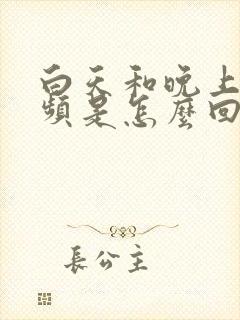 白天和晚上
頻是怎麼回
長公主